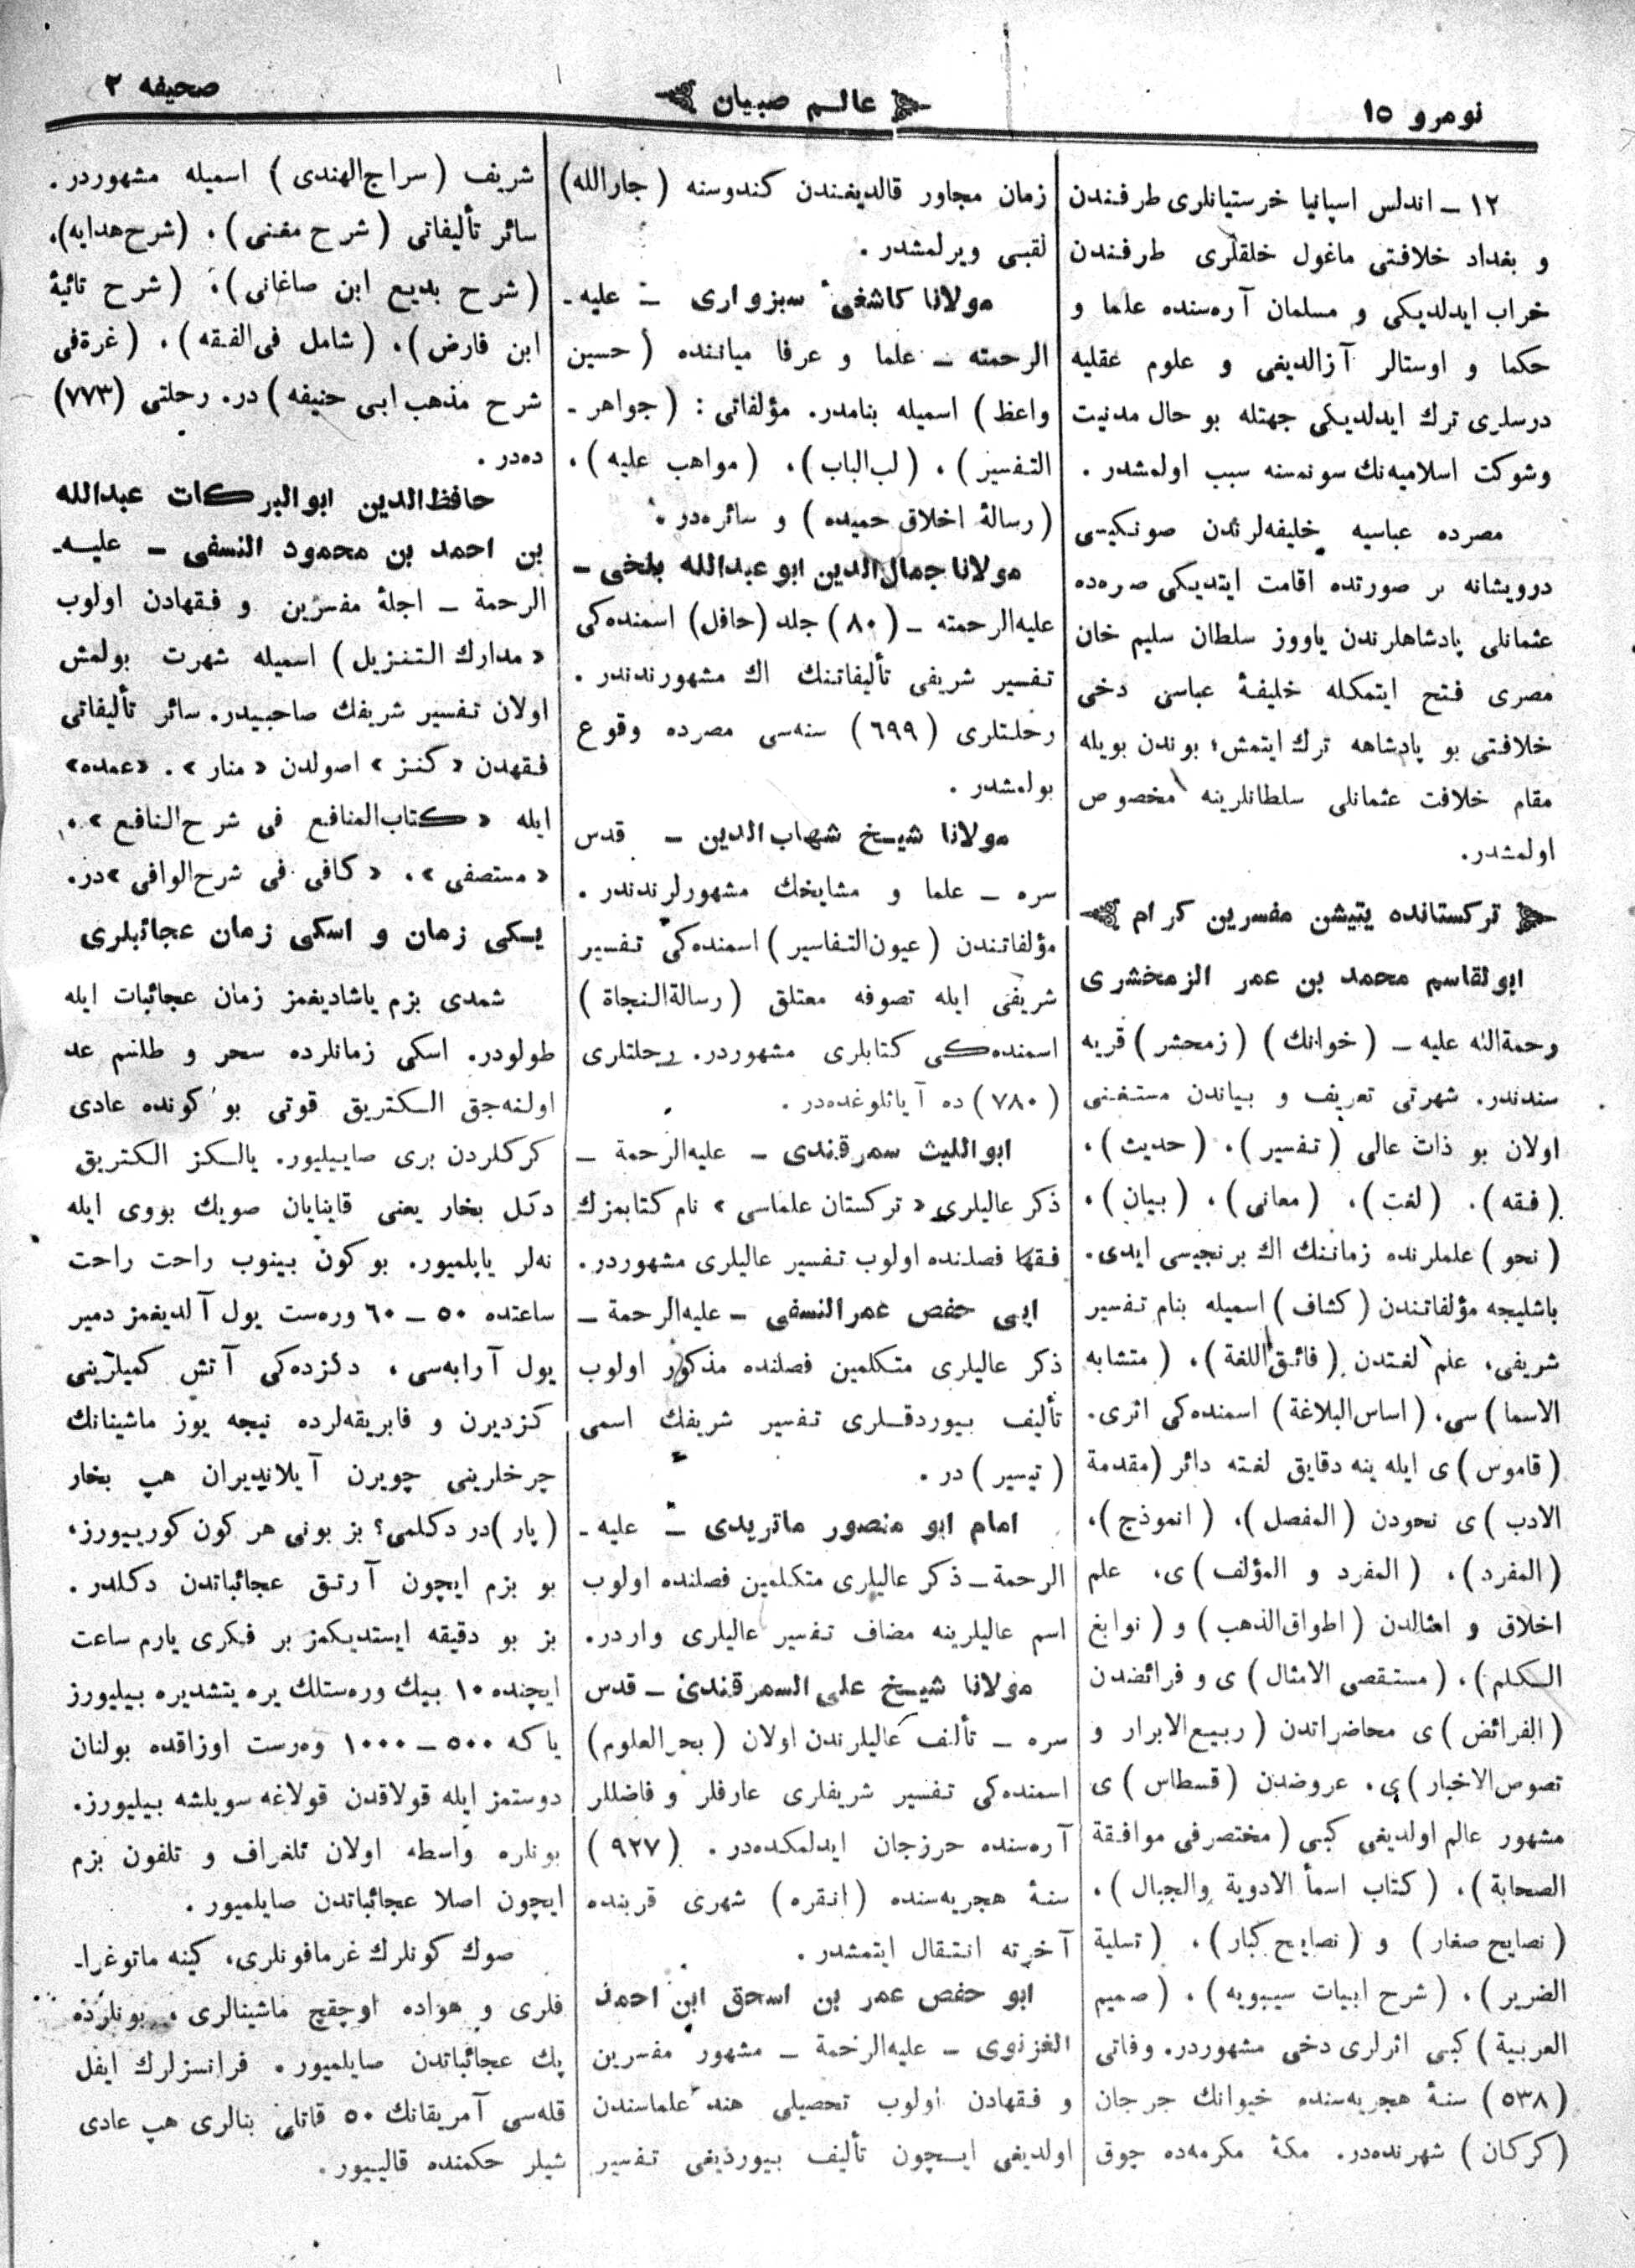 نومرو ١٥
عالـم صبيان
صحيفه ٣
١٢ ــ اندلس اسپانيا خرستيانلری طرفـندن
و بغداد خلافـتی ماغول خلقلری طرفـندن
خراب ايدلديكی و مسلمان آره‌سنده علما و
حكما و اوستالر آزالديغی و علوم عقليه
درسلری ترك ايدلديكی جهتله بو حال مدنيت
وشوكت اسلاميه‌نك سونمسنه سبب اولمشدر .
مصرده عباسيه خليفه‌لرندن صونكيسی
درويشانه بر صورتده اقامت ايتديكی صره‌ده
عثمانلی پادشاهلرندن ياووز سلطان سليم خان
مصری فـتح ايتمكله خليفۀ عباسی دخی
خلافـتی بو پادشاهه ترك ايتمش؛ بوندن بويله
مقام خلافت عثمانلی سلطانلرينه مخصوص
اولمشدر.
تركستانده يتيشن مفسرين كرام
ابولقاسم محمد بن عمر الزمخشری
رحمة‌الله عليه ــ (خوانك) (زمحشر) قريه
سندندر. شهرتی تعريف و بياندن مستـغـنی
اولان بو ذات عالی (تـفسير)، (حديث)،
(فقه). (لغت)، (معانی)، (بيان)،
(نحو) علملرنده زمانـنك اك برنجيسی ايدی.
باشليجه مؤلفاتـندن (كشاف) اسميله بنام تـفسير
شريفی، علم لغـتدن (فائـق‌اللغة)، (متشابه
الاسما) سی، (اساس‌البلاغة) اسمنده‌كی اثری.
(قاموس) ی ايله ينه دقايق لغـته دائر (مقدمة
الادب) ی نحودن (المفصل)، (انموذج)،
(المفرد)، (المفرد و المؤلف) ی، علم
اخلاق و امثالدن (اطواق‌الذهب) و (نوابغ
الـكلم)، (مستـقصی الامثال) ی و فرائضدن
(الفرائض) ی محاضراتدن (ربيع‌الابرار و
تصوص‌الاخبار) ی. عروضدن (قسطاس) ی
مشهور عالم اولديغی كبی (مختصر فی موافـقة
الصحابة)، (كتاب اسمأ الادوية والجبال)،
(نصايح صغار) و (نصايح كبار)، (تسلية
الضرير)، (شرح ابيات سيبويه)، (صميم
العربية) كبی اثرلری دخی مشهوردر. وفاتی
(٥٣٨) سنۀ هجريه‌سنده خيوانك جرجان
(كركان) شهرنده‌در. مكۀ مكرمه‌ده چوق
زمان مجاور قالديغـندن كندوسنه (جارالله)
لقبی ويرلمشدر .
مولانا كاشفی سبزواری ــ عليه‌ـ
الرحمته ــ علما و عرفا مياننده (حسين
واعظ) اسميله بنامدر. مؤلفاتی : (جواهر ـ
التـفسير)، (لب‌الباب)، (مواهب عليه)،
(رسالۀ اخلاق حميده) و سائره‌در .
مولانا جمال‌الدين ابو عبدالله بلخی ــ
عليه‌الرحمته ــ (٨٠) جلد (حافل) اسمنده‌كی
تـفسير شريفی تأليفاتـنك اك مشهورندندر .
رحلـتلری (٦٩٩) سنه‌سی مصرده وقوع
بولمشدر .
مولانا شيـخ شهاب‌الدين ــ قدس
سره ــ علما و مشايخك مشهورلرندندر .
مؤلفاتـندن (عيون‌التـفاسير) اسمنده‌كی تـفسير
شريفی ايله تصوفه معتلق (رسالةالـنجاة)
اسمنده‌كـی كتابلری مشهوردر. رحلتلری
(٧٨٠) ده آياثلوغده‌در .
ابوالليث سمرقندی ــ عليه‌الرحمة ــ
ذكر عاليلری « تركستان علماسی » نام كتابمزك
فـقها فصلـنده اولوب تـفسير عاليلری مشهوردر.
ابی حفص عمرالنسفی ــ عليه‌الرحمة ــ
ذكر عاليلری متـكلمين فصلنده مذكور اولوب
تأليف بيوردقـلری تـفسير شريفك اسمی
(تيسير) در .
امام ابو منصور ماتريدی ــ عليه‌ـ
الرحمة ــ ذكر عاليلری متكلمين فصلنده اولوب
اسم عاليلرينه مضاف تـفسير عاليلری واردر.
مولانا شيـخ علی السمرقندی ــ قدس
سره ــ تألف عاليلرندن اولان (بحرالعلوم)
اسمنده‌كی تـفسير شريفلری عارفلر و فاضللر
آره‌سنده حرزجان ايدلمكده‌در . (٩٢٧)
سنۀ هجريه‌سنده (انـقره) شهری قربنده
آخرته انتقال ايتمشدر .
ابو حفص عمر بن اسحق ابن احمد
الغزنوی ــ عليه‌الرحمة ــ مشهور مفسرين
و فـقهادن اولوب تحصيلی هند علماسندن
اولديغی ايـچون تأليف بيورديغی تـفسير
شريف (سراج‌الهندی) اسميله مشهوردر .
سائر تأليفاتی (شرح مغـنی)، (شرح‌هدايه)،
(شرح بديع ابن صاغانی)، (شرح تائيۀ
ابن فارض)، (شامل فی‌الفـقه)، (غرة‌فی
شرح مذهب ابی حنيفه) در. رحلتی (٧٧٣)
ده‌در .
حافظ‌الدين ابوالبركات عبدالله
بن احمد بن محمود النسفی ــ عليـه‌ـ
الرحمة ــ اجلۀ مفسرين و فـقهادن اولوب
« مدارك التـنزيل) اسميله شهرت بولمش
اولان تـفسير شريفك صاحبيدر. سائر تأليفاتی
فـقهدن « كنـز » اصولدن « منار » . «عمده»
ايله « كتاب‌المنافـع فی شرح‌النافع » .
« مستصفی » . « كافی فی شرح‌الوافی » در.
يـكی زمان و اسكی زمان عجائبلری
شمدی بزم ياشاديغمز زمان عجائبات ايله
طولودر. اسكی زمانلرده سحر و طلسم عد
اولنه‌جق الـكتريق قوتی بو كونده عادی
كركلردن بری صاييليور. يالـكز الكتريق
دكل بخار يعنی قاينايان صويك بووی ايله
نه‌لر ياپلميور. بو كون بينوب راحت راحت
ساعتده ٥٠ ــ ٦٠ وره‌ست يول آلديغمز دمير
يول آرابه‌سی ، دكزده‌كی آتش كميلرينی
كـزديرن و فابريقه‌لرده نيجه يوز ماشينانك
چرخلرينی چويرن آيلانديران هپ بخار
(پار) در دكلمی؟ بز بونی هر كون كورييورز،
بو بزم ايچون آرتـق عجائباتدن دكلدر .
بز بو دقيقه ايستديكمز بر فـكری يارم ساعت
ايچنده ١٠ بيك وره‌ستلك يره يتشديره بيليورز
ياكه ٥٠٠ ــ ١٠٠٠ وه‌رست اوزاقده بولنان
دوستمز ايله قولاقدن قولاغه سويلشه بيليورز.
بونلره واسطه اولان تلغراف و تلفون بزم
ايچون اصلا عجائباتدن صايلميور .
صوك كونلرك غرمافونلری، كينه ماتوغراـ
فلری و هواده اوچقچ ماشينالری ، بونلرده
پك عجائباتدن صايلميور . فرانسزلرك ايفل
قله‌سی آمريقانك ٥٠ قاتلی بنالری هپ عادی
شيلر حكمنده قالييور .